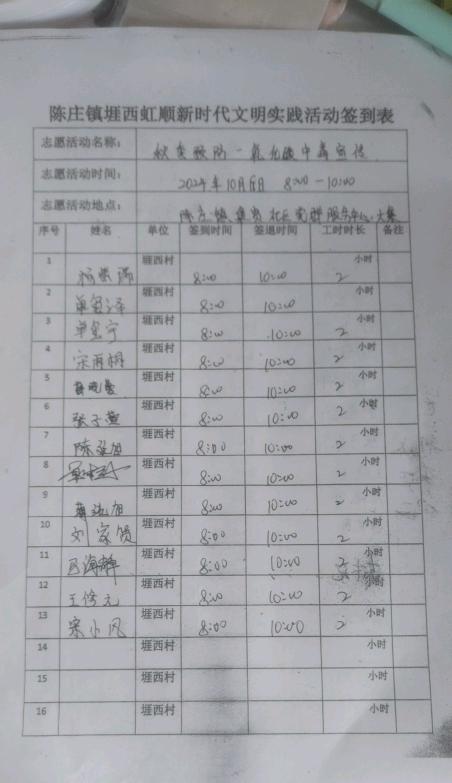 陈庄镇堐西虹顺新时代文明实践活动签到表
志愿活动名称： 秋冬预防一氧化碳中毒宣传
志愿活动时间： 2024年10月 日 8:00-10:00
志愿活动地点： 陈庄镇 社区党群服务中心 大集
序号 姓名 单位 签到时间 签退时间 工时时长 备注
1 堐西村 8:00 10:00 2 小时
2 堐西村 8:00 10:00 小时
3 堐西村 8:00 10:00 2 小时
4 宋雨桐 堐西村 8:00 10:00 2 小时
5 堐西村 8:00 10:00 2 小时
6 张子萱 堐西村 8:00 10:00 2 小时
7 陈 旭 堐西村 8:00 10:00 2 小时
8 堐西村 8:00 10:00 2 小时
9 旭 堐西村 8:00 10:00 2 小时
10 刘家 堐西村 8:00 10:00 2 小时
11 海静 堐西村 8:00 10:00 2 小时
12 王修元 堐西村 8:00 10:00 2 小时
13 宋小凤 堐西村 8:00 10:00 2 小时
14 堐西村 小时
15 堐西村 小时
16 堐西村 小时